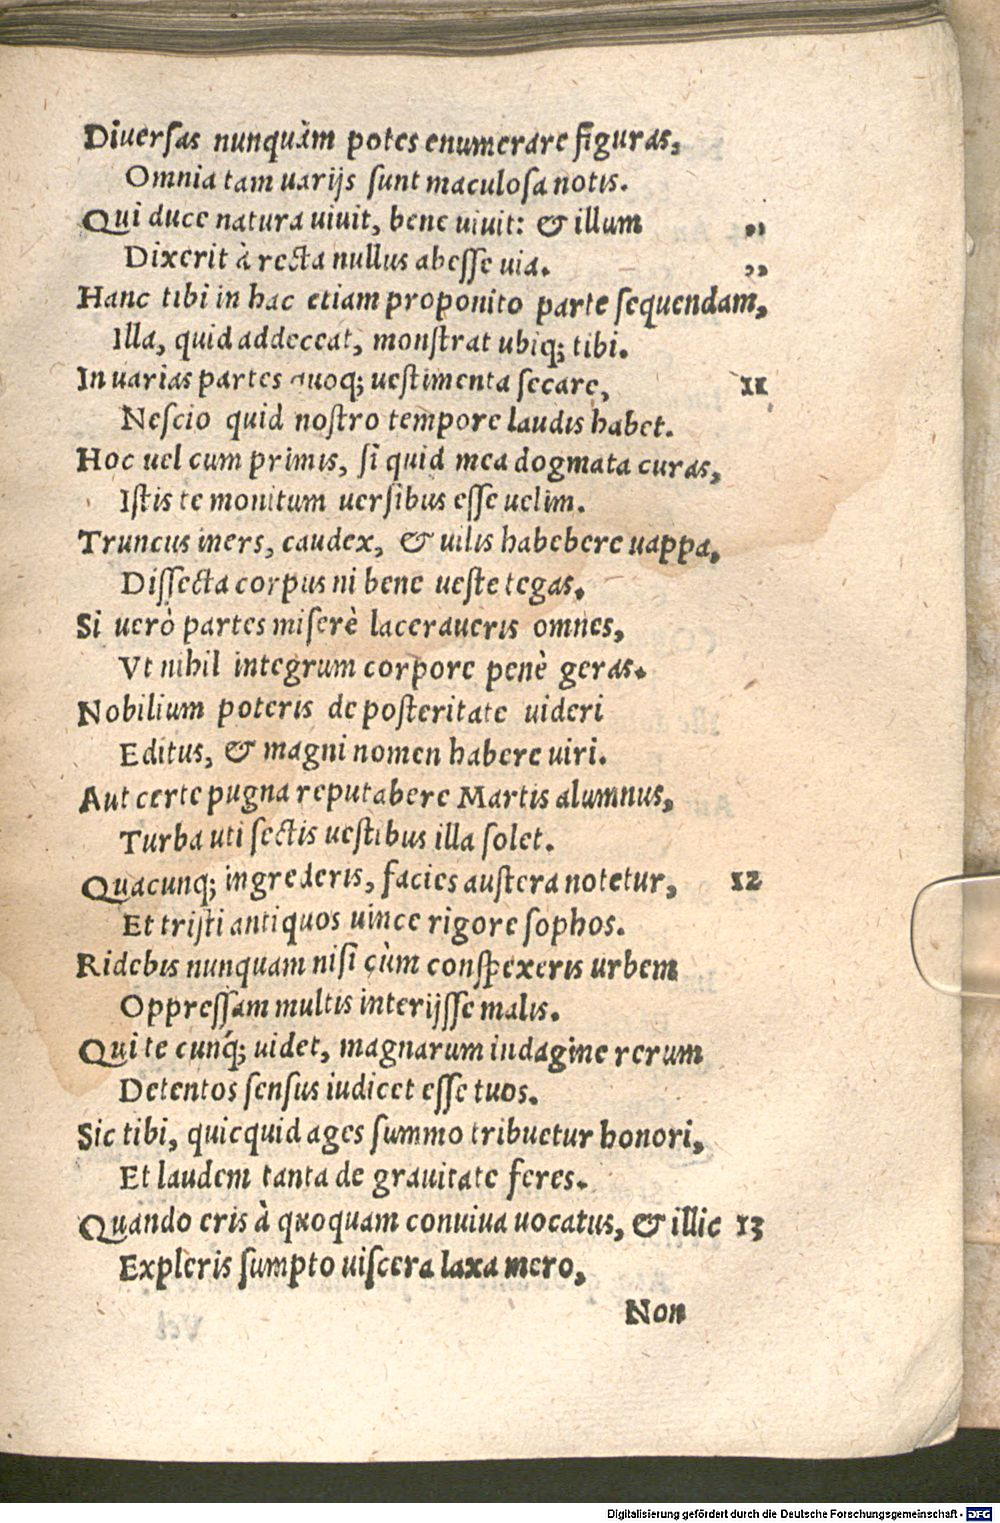 Diuerſas nunquàm potes enumerare figuras,
Omnia tam uarijs ſunt maculoſa notis.
Qui duce natura uiuit, bene uiuit: & illum „
Dixerit à recta nullus abeſſe uia. „
Hanc tibi in hac etiam proponito parte ſequendam,
Illa, quid addeceat, monſtrat ubiq; tibi.
In uarias partes quoq; ueſtimenta ſecare, 11
Neſcio quid noſtro tempore laudis habet.
Hoc uel cum primis, ſi quid mea dogmata curas,
Iſtis te monitum uerſibus eſſe uelim.
Truncus iners, caudex, & uilis habebere uappa,
Diſſecta corpus ni bene ueſte tegas.
Si uerò partes miſerè laceraueris omnes,
Vt nihil integrum corpore penè geras.
Nobilium poteris de poſteritate uideri
Editus, & magni nomen habere uiri.
Aut certe pugna reputabere Martis alumnus,
Turba uti ſectis ueſtibus illa ſolet.
Quacunq; ingrederis, facies auſtera notetur, 12
Et triſti antiquos uince rigore ſophos.
Ridebis nunquam niſi cùm conſpexeris urbem
Oppreſſam multis interijſſe malis.
Qui te cunq́; uidet, magnarum indagine rerum
Detentos ſenſus iudicet eſſe tuos.
Sic tibi, quicquid ages ſummo tribuetur honori,
Et laudem tanta de grauitate feres.
Quando eris à quoquam conuiua uocatus, & illic 13
Expleris ſumpto uiſcera laxa mero,
Non
Digitalisierung gefördert durch die Deutsche Forschungsgemeinschaft - DFG